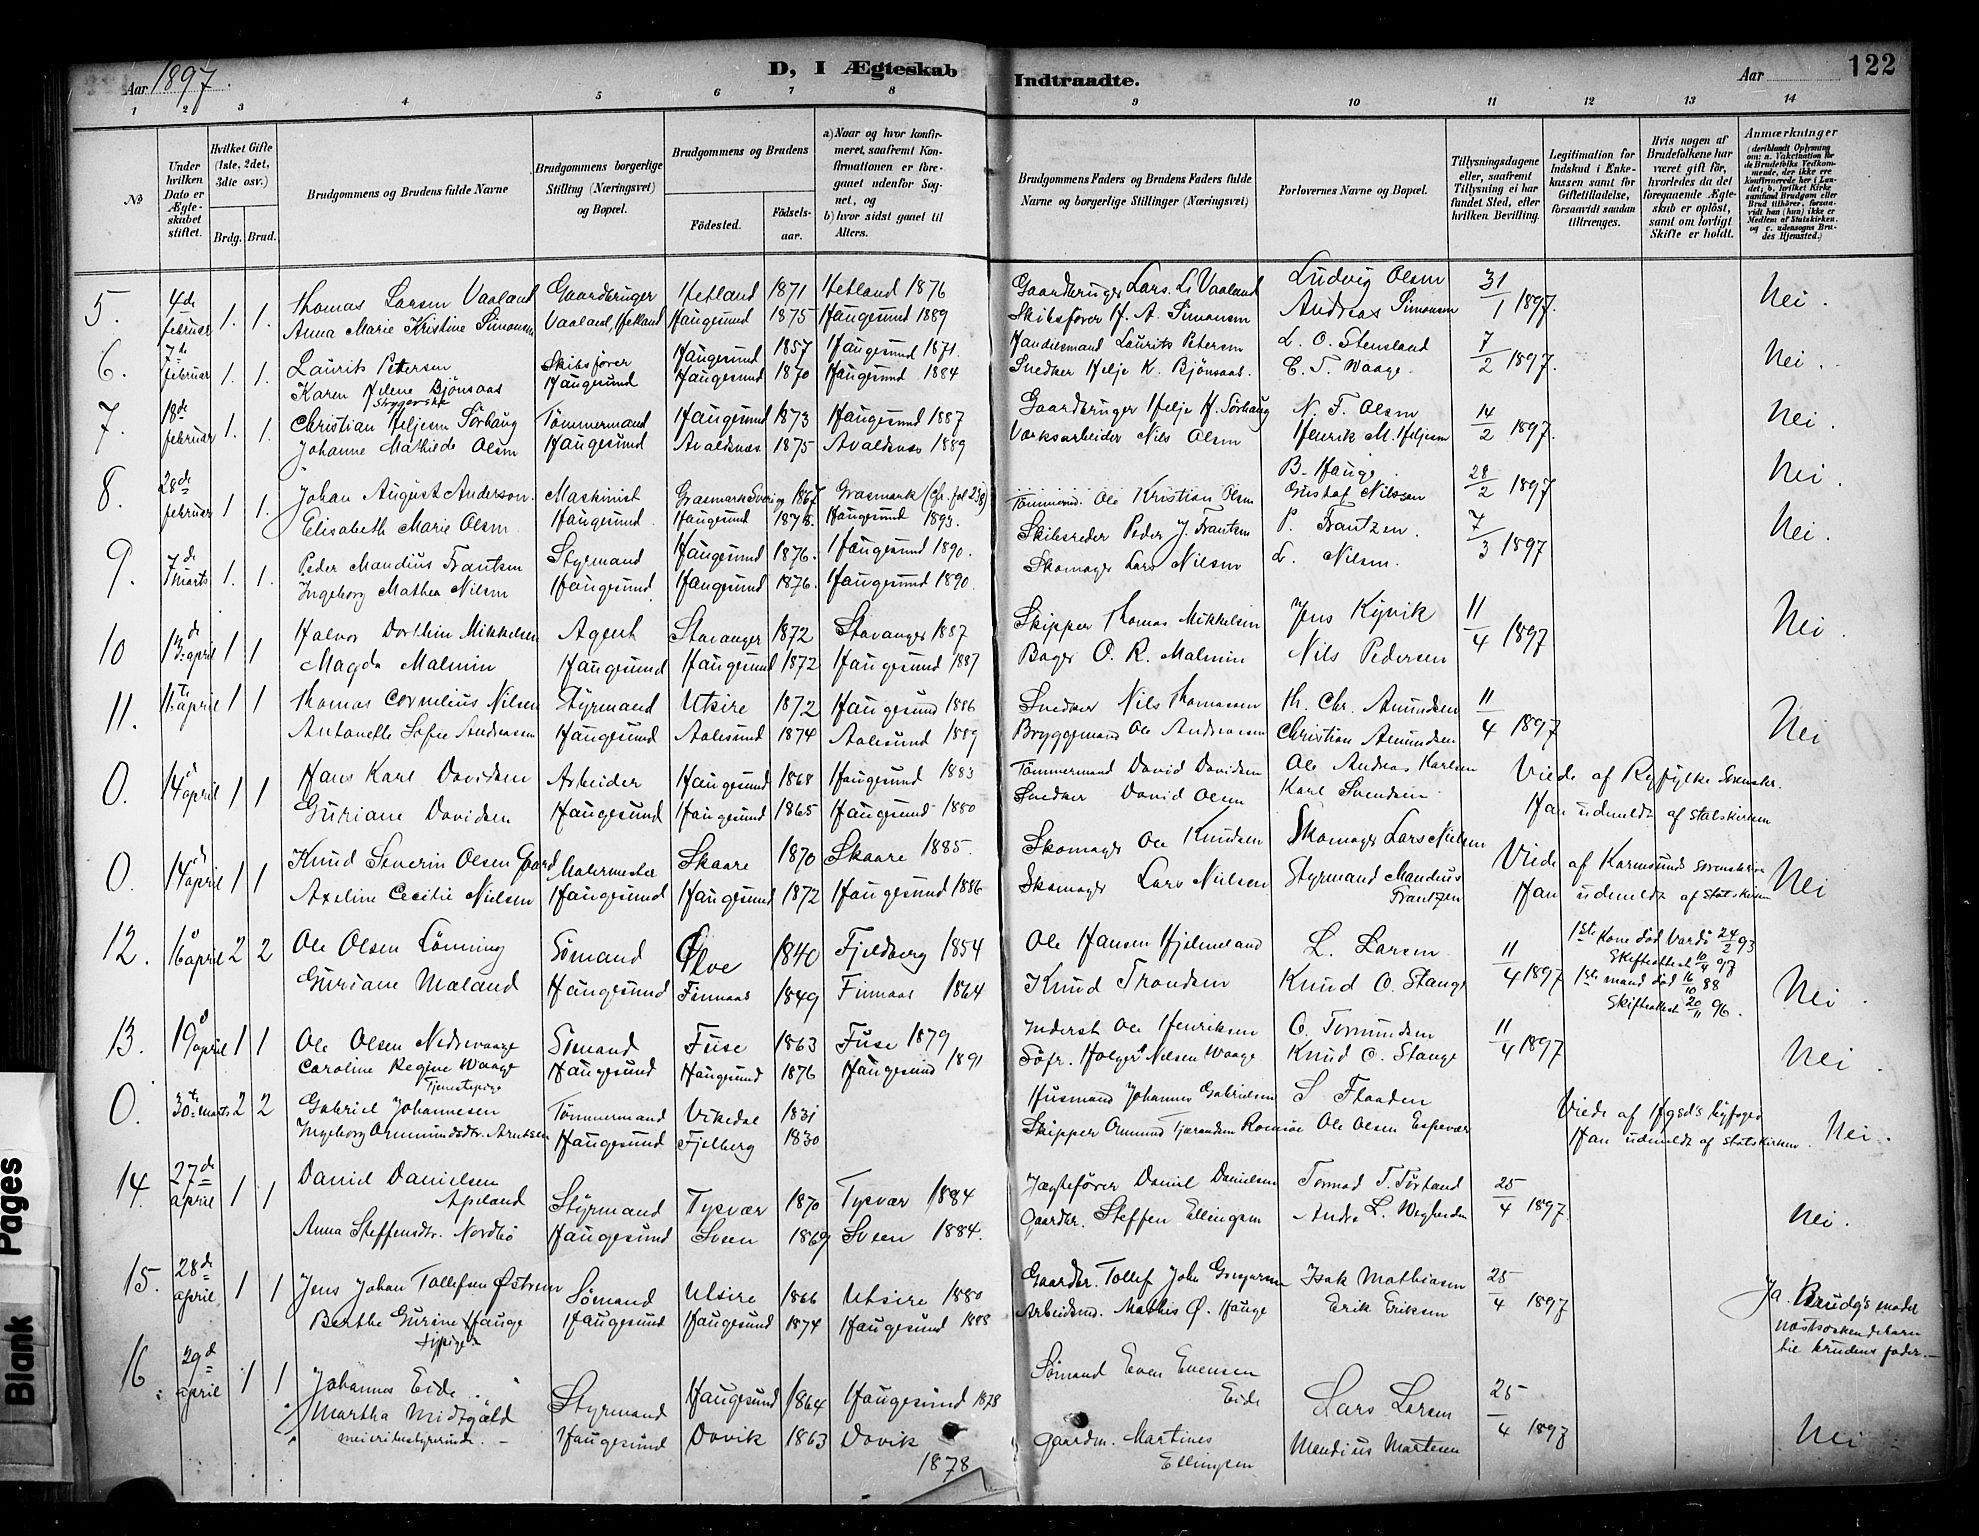 Aar 1897.
D, I Ægteskab Indtraadte.
Aar 122
1 2 3 4 5 6 7 8 9 10 11 12 13 14
№
Under hvilken Dato er Ægteskabet stiftet.
Hvilket Gifte (1ste, 2det, 3die osv.)
Brdg. Brud.
Brudgommens og Brudens fulde Navne
Brudgommens borgerlige Stilling (Næringsvei) og Bopæl.
Brudgommens og Brudens
Fødested.
Fødselsaar.
a) Naar og hvor konfirmeret, saafremt Konfirmationen er foregaaet udenfor Sognet, og
b) hvor sidst gaaet til Alters.
Brudgommens Faders og Brudens Faders fulde Navne og borgerlige Stillinger (Næringsvei)
Forlovernes Navne og Bopæl.
Tillysningsdagene eller, saafremt Tillysning ei har fundet Sted, efter hvilken Bevilling.
Legitimation for Indskud i Enkekassen samt for Giftetilladelse, forsaavidt saadan tiltrænges.
Hvis nogen af Brudefolkene har været gift før, hvorledes da det foregaaende Ægteskab er opløst, samt om lovligt Skifte er holdt.
Anmærkninger (deriblandt Oplysning om: a. Vakcination for de Brudefolks Vedkommende, der ikke ere Konfirmerede her i Landet; b. hvilket Kirkesamfund Brudgom eller Brud tilhører, forsaavidt han (hun) ikke er Medlem af Statskirken, og c. udensogns Brudes Hjemsted.)
5. 4de februar 1. 1. Thomas Larsen Vaaland Gaardbruger Hetland 1871 Hetland 1876 Gaardbruger Lars L. Vaaland Ludvig Olsen 31/1 1897. Nei.
Anna Marie Kristine Simonsen Vaaland, Hetland Haugesund 1875 Haugesund 1889 Skibsfører H. A. Simonsen Andreas Simonsen
6. 7de februar 1. 1. Laurits Petersen Skibsfører Haugesund 1857 Haugesund 1871. Handelsmand Laurits Petersen L. O. Stensland 7/2 1897. Nei.
Karen Helene Bjønsaas Haugesund Haugesund 1870 Haugesund 1884 Snedker Helje K. Bjønsaas. E. T. Waage.
7. 18de februar 1. 1. Christian Heljesen Sørhaug Tømmermand Haugesund 1873 Haugesund 1887 Gaardbruger Helje H. Sørhaug N. T. Olsen 14/2 1897. Nei.
Johanne Mathilde Olsen Haugesund Avaldsnes 1875 Avaldsnes 1889 Værksarbeider Nils Olsen Henrik M. Heljesen
8. 28de februar 1 1. Johan August Anderson. Maskinist Grasmark Sverig 1867 Grasmark B. Hauge. 28/2 1897 Nei.
Elisabeth Marie Olsen Haugesund Haugesund 1878. Haugesund 1893. Tømmermd. Ole Kristian Olsen Gustaf Nilsson
9. 7de Marts 1. 1. Peder Mandius Frantzen Styrmand Haugesund 1876. Haugesund 1890. Skibsreder Peder J. Frantzen P. Frantzen. 7/3 1897 Nei.
Ingeborg Mathea Nilsen Haugesund Haugesund 1876. Haugesund 1890 Skomager Lars Nilsen L. Nilsen.
10 13de april 1 1 Halvor Dorthin Mikkelsen Agent Stavanger 1872 Stavanger 1887 Skipper Thomas Mikkelsen Jens Kyvik 11/4 1897 Nei.
Magda Malmin Haugesund Haugesund 1872 Haugesund 1887 Bager O. R. Malmin Nils Pedersen
11. april 1 1 Thomas Cornelius Nilsen Styrmand Utsire 1872 Haugesund 1886 Snedker Nils Thomassen Th. Chr. Amundsen 11/4 1897 Nei
Antonette Sofie Andreasen Haugesund Aalesund 1874 Aalesund 1889 Bryggemand Ole Andreasen Christian Amundsen
0. 14de april 1 1 Hans Karl Davidsen Arbeider Haugesund 1868 Haugesund 1883 Tømmermand David Davidsen Ole Andreas Karlsen Viede af Ryfylke Sorenskr.
Guriane Davidsen Haugesund Haugesund 1865 Haugesund 1880 Snedker David Olsen Karl Svendsen Han udmeldt af Statskirken
0. 14de april 1 1 Knud Severin Olsen Gaard Malermester Skaare 1870 Skaare 1885. Skomager Ole Knudsen Skomager Lars Nielsen Viede af Karmsunds sorenskriver Nei
Axeline Cecilie Nielsen Haugesund Haugesund 1872 Haugesund 1886 Skomager Lars Nielsen Styrmand Mandius Frantzen Han udmeldt af Statskirken
12. 16 april 2 2 Ole Olsen Lønning Sømand Ølve 1840 Fjeldberg 1854 Ole Hansen Hjelmeland L. Larsen 11/4 1897 1ste Kone død Vardö 24/2 93 Skifteattest 10/4 97
Guriane Maland Haugesund Finnaas 1849 Finnaas 1864 Knud Trondsen Knud O. Stange 1ste mand død 16/10 88 Skifteattest 20/11 96. Nei.
13. 19 april 1 1 Ole Olsen Nedrevaage Sømand Fuse 1863 Fuse 1879 Inderst Ole Henriksen O. Tormundsen 11/4 1897 Nei.
Caroline Regine Waage Haugesund Haugesund 1876 Haugesund 1891 Søfr. Holger Nilsen Waage Knud O. Stange
Tjenestepige
0. 30te marts 2 2 Gabriel Johannesen Tømmermand Vikedal 1831 Husmand Johannes Gabrielsen S Flaaden Viede af Hgsd's byfoged
Ingeborg Ommundsdtr. Arntsen Haugesund Fjelberg 1830 Skipper Ommund Tjerandsen Romsøe Ole Olsen Espevær Han udmeldt af Statskirken. Nei.
14. 27de april 1 1 Daniel Danielsen Apeland Styrmand Tysvær 1870 Tysvær 1884 Jægtefører Daniel Danielsen Tormod T. Førland 25/4 1897. Nei.
Anna Steffensdtr. Nordbö Haugesund Sveen 1869 Sveen 1884. Gaardbr. Steffen Ellingsen
15. 28de april 1 1 Jens Johan Tollefsen Østrem Sømand Utsire 1866 Utsire 1880 Gaardbr. Tollef John Isak Mathiasen 25/4 1897 Ja. Brudg's moder næstsøskendebarn til brudens fader.
Berthe Gurine Hauge Haugesund Haugesund 1874 Haugesund 1888 Arbeidsmd. Mathis Ø. Hauge Erik Eriksen
16. 29de april 1 1 Johannes Eide. Styrmand Haugesund 1864 Haugesund 1878 Sømand Even Evensen Eide Lars Larsen 25/4 1897 Nei
Martha Midtgæld Haugesund Davik 1863 Davik 1878 Gaardm. Martines Ellingsen Mandius Martesen
meieribestyrerinde.
Blank Pages